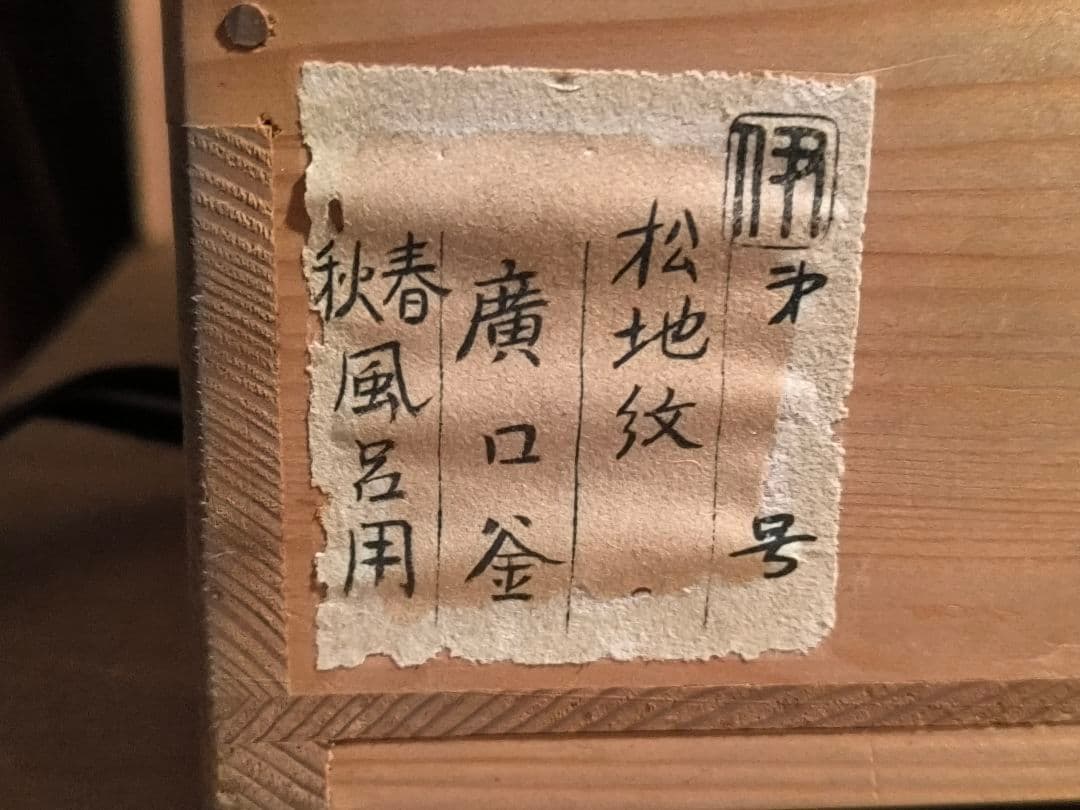 伊
㐧 号
松地紋
廣口釜
春秋風呂用